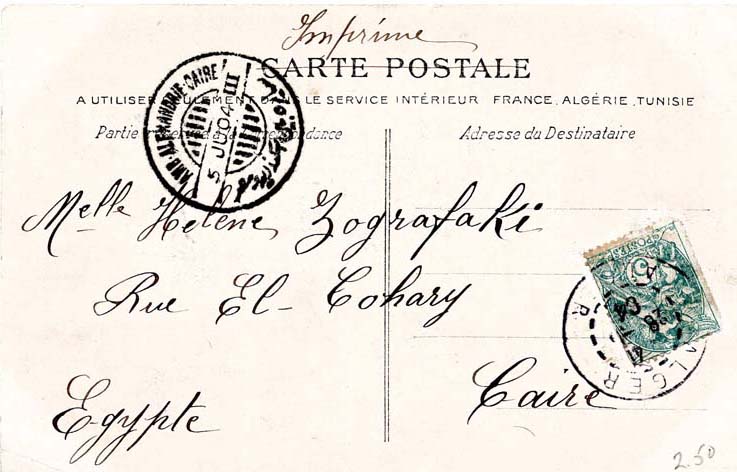 Imprimé
CARTE POSTALE
A UTILISER SEULEMENT DANS LE SERVICE INTÉRIEUR FRANCE, ALGÉRIE, TUNISIE
Partie réservée à la Correspondance
Adresse du Destinataire
AMB-ALEXANDRIE-CAIRE III
5 JU 04
Melle Helene Zografaki
Rue El-Cohary
Caire
Egypte
ALGER
04
2.50